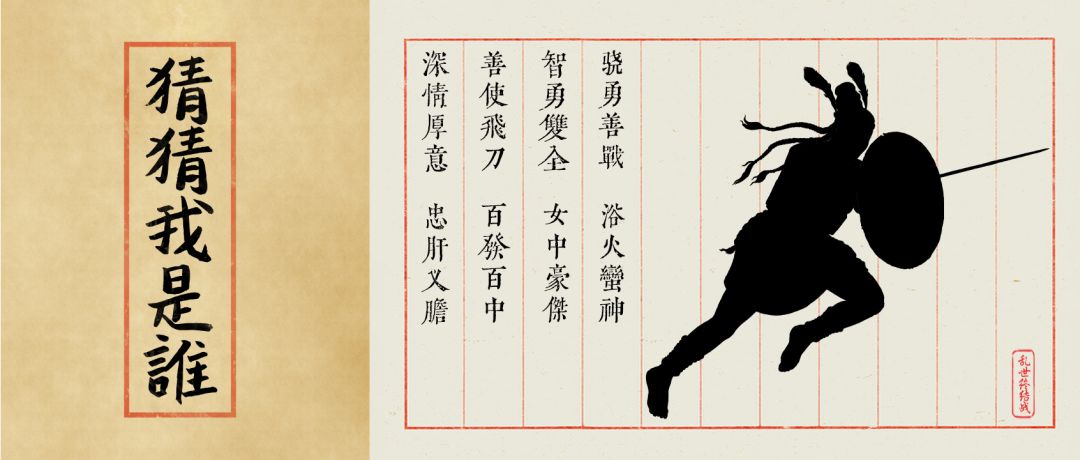 猜猜我是誰
骁勇善戰 浴火蠻神
智勇雙全 女中豪傑
善使飛刀 百發百中
深情厚意 忠肝义膽
乱世终结战